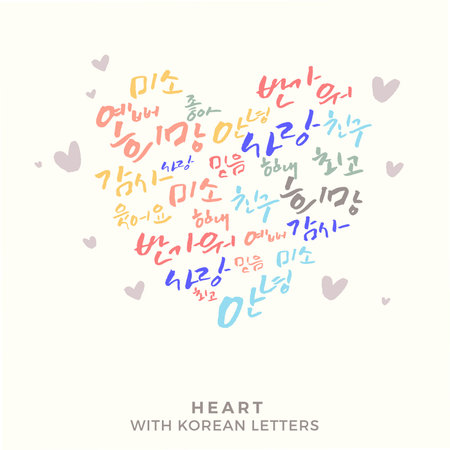 미소 반가워
예뻐 좋아
희망 안녕 사랑 친구
감사 사랑 믿음 힘내 최고
웃어요 미소 힘내 친구 희망
반가워 예뻐 감사
사랑 믿음 미소
최고 안녕
HEART
WITH KOREAN LETTERS